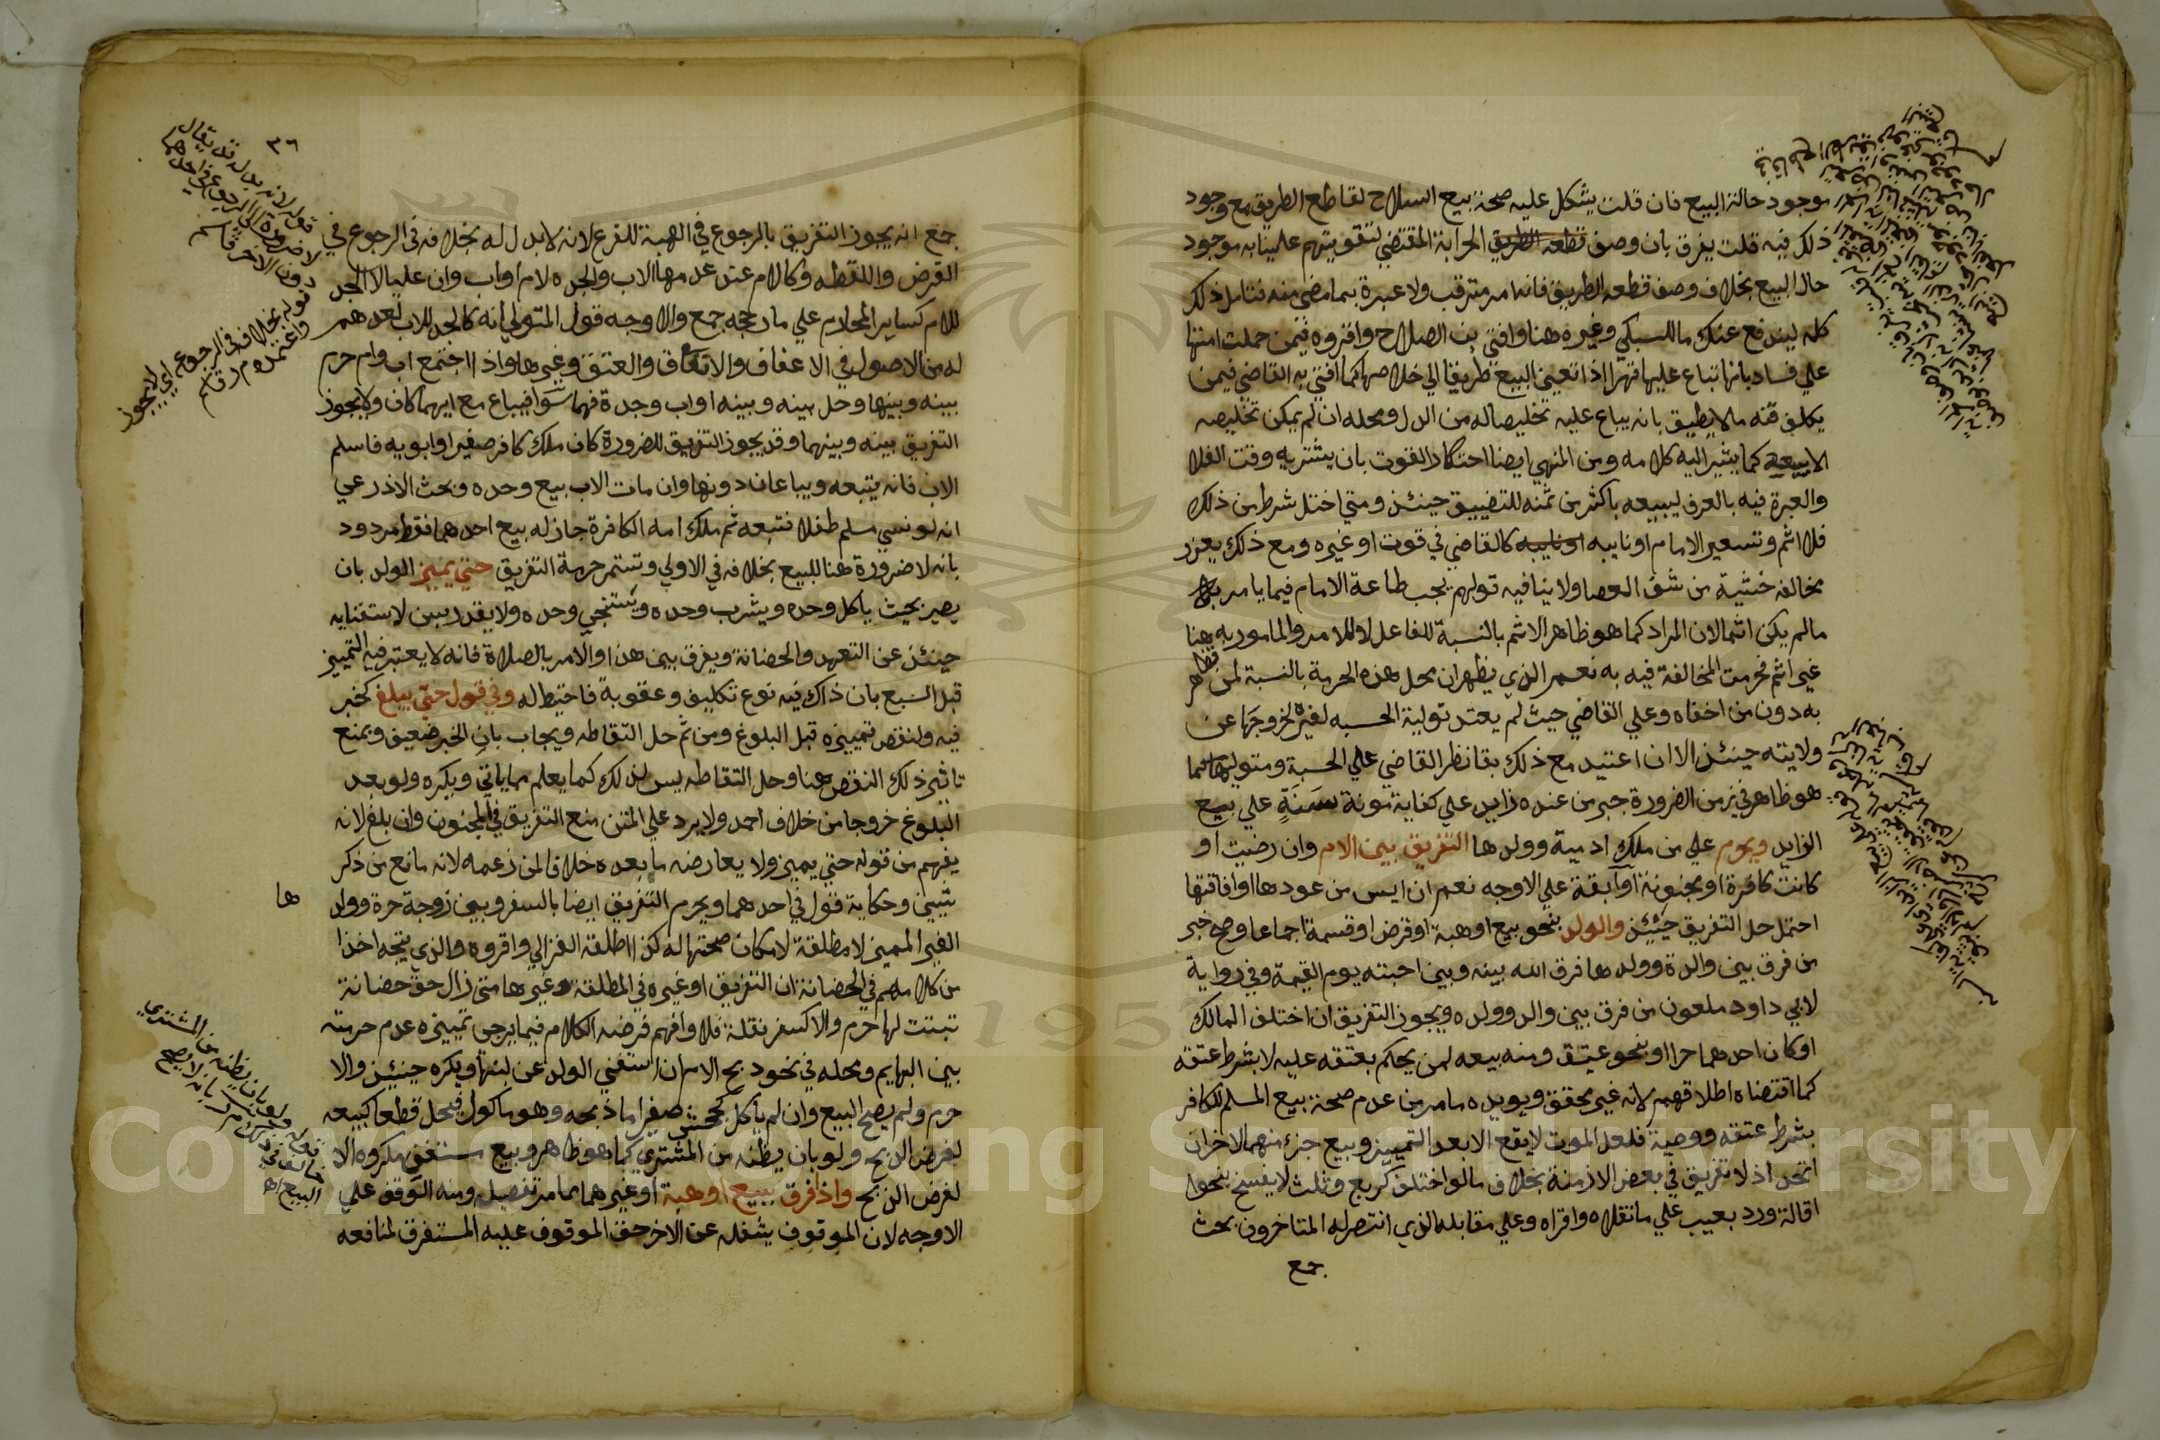 موجود حالة البيع فان قلت يشكل عليه صحة بيع السلاح لقاطع الطريق مع وجود
ذلك فيه قلت يفرق بان وصف قطعه الطريق الحرابة المقتضي لتقويتهم علينا به موجود
حال البيع بخلاف وصف قطعه الطريق فانه امر مترقب ولا عبرة بما مضى منه فتامل ذلك
كله ليندفع عنك ما للسبكي وغيره هنا وافتي بن الصلاح واقروه فيمن حملت امتها
علي فساد بانها تباع عليها قهرا اذا تعين البيع طريقا الي خلاصها كما افتي به القاضي فيمن
يكلف قنه ما لا يطيق بانه يباع عليه تخليصا له من الذل ومحله ان لم يمكن تخليصه
الا ببيعه كما يشير اليه كلامه ومن المنهي ايضا احتكار القوت بان يشتريه وقت الغلا
والعبرة فيه بالعرف ليبيعه باكثر من ثمنه للتضييق حينئذ ومتي اختل شرط من ذلك
فلا اثم وتسعير الامام او نايبه او نايبه كالقاضي في قوت او غيره ومع ذلك يعزر
مخالفه خشية من شق العصا ولا ينافيه قولهم يجب طاعة الامام فيما يامر به
ما لم يكن اثما لان المراد كما هو ظاهر الاثم بالنسبة للفاعل لا للامر والمامور به هنا
غير اثم فحرمت المخالفة فيه به نعم الذي يظهر ان محل هذه الحرمة بالنسبة لمن تظاهر
به دون من اخفاه وعلي القاضي حيث لم يعتد تولية الحسبه لغيره لخروجها عن
ولايته حينئذ الا ان اعتيد مع ذلك بقا نظر القاضي علي الحسبة ومتوليها كما
هو ظاهر في زمن الضرورة جبر من عنده زايد علي كفاية مونة سَنَةٍ علي بيع
الزايد ويحرم علي من ملك ادمية وولدها التفريق بين الام وان رضيت او
كانت كافرة او مجنونة او آبقة علي الاوجه نعم ان ايس من عودها او افاقتها
احتمل حل التفريق حينئذ والولد بنحو بيع او هبة او قرض او قسمة اجماعا وصح خبر
من فرق بين والدة وولدها فرق الله بينه وبين احبته يوم القيمة وفي رواية
لابي داود ملعون من فرق بين والد وولده ويجوز التفريق ان اختلف المالك
او كان احدهما حرا او بنحو عتق ومنه بيعه لمن يحكم بعتقه عليه لا بشرط عتقه
كما اقتضاه اطلاقهم لانه غير محقق ويويده ما مر من عدم صحة بيع المسلم للكافر
بشرط عتقه ووصية فلعل الموت لا يقع الا بعد التمييز وبيع جزء منهما لاخر ان
اتحد اذ لا تفريق في بعض الازمنة بخلاف ما لو اختلف كربع وثلث لا بفسخ بنحو
اقالة ورد بعيب علي ما نقلاه واقراه وعلي مقابله الذي انتصر له المتاخرون بحث
جمع
٣٦
جمع انه يجوز التفريق بالرجوع في الهبة للفرع لانه لا بدل له بخلافه في الرجوع في
القرض واللقطه وكالام عند عدمها الاب والجده لام او اب وان عليا لا الجد
للام كساير المحارم علي ما رجحه جمع والاوجه قول المتولي انه كالجد للاب لعدهم
له من الاصول في الاعفاف والانفاق والعتق وغيرها واذا اجتمع اب وام حرم
بينه وبينها وحل بينه وبينه او اب وجدة فهما سَوَا فيباع مع ايهما كان ولا يجوز
التفريق بينه وبينهما وقد يجوز التفريق للضرورة كان ملك كافر صغيرا وابويه فاسلم
الاب فانه يتبعه ويباعان دونها وان مات الاب بيع وحده وبحث الاذرعي
انه لو سبي مسلم طفلا فتبعه ثم ملك امه الكافرة جاز له بيع احدهما فقط مردود
بانه لا ضرورة هنا للبيع بخلافه في الاولي وتستمر حرمة التفريق حتي يميز الولد بان
يصير بحيث ياكل وحده ويشرب وحده ويستنجي وحده ولا يقدر بسن لاستغنايه
حينئذ عن التعهد والحضانة ويفرق بين هذا والامر بالصلاة فانه لا يعتبر فيه التمييز
قبل السبع بان ذاك فيه نوع تكليف وعقوبة فاحتيط له وفي قول حتي يبلغ كخبر
فيه ولنقص تمييزه قبل البلوغ ومن ثم حل التقاطه ويجاب بان الخبر ضعيف وبمنع
تاثير ذلك النقص هنا وحل التقاطه ليس لذلك كما يعلم مما ياتي ويكره ولو بعد
البلوغ خروجا من خلاف احمد ولا يرد علي المتن منع التفريق في المجنون وان بلغ لانه
يفهم من قوله حتي يميز ولا يعارضه ما بعده خلافا لمن زعمه لانه مانع من ذكر
شيئين وحكاية قول في احدهما ويحرم التفريق ايضا بالسفر وبين زوجة حرة وولد
ها
الغير المميز لا مطلقة لامكان صحبتها له كذا اطلقه الغزالي واقروه والذي يتجه اخذا
من كلامهم في الحضانة ان التفريق او غيره في المطلقة وغيرها متي زال حق حضانة
تبتت لها حرم والا كسفر نقلة فلا وافهم فرضه الكلام فيما يرجي تمييزه عدم حرمته
بين البهايم ومحله في نحو ذبح الام ان استغني الولد عن لبنها ويكره حينئذ والا
حرم ولم يصح البيع وان لم يأكل كجحش صغير اما ذبحه وهو ماكول فيحل قطعا كبيعه
لغرض الذبح ولو بان يظنه من المشتري كما هو ظاهر وبيع مستغن مكروه الا
لغرض الذبح واذا فرق ببيع او هبة او غيرهما مما مر تفصيله ومنه الوقف علي
الاوجه لان الموقوف يشغله عن الاخر حق الموقوف عليه المستغرق لمنافعه
قوله لانه بدل له قد يقال
لا ضرورة الي الرجوع في احدهما
دون الاخر قاسم
قوله بخلافه في الرجوع اي لا يجوز
واعتمده م ر قاسم